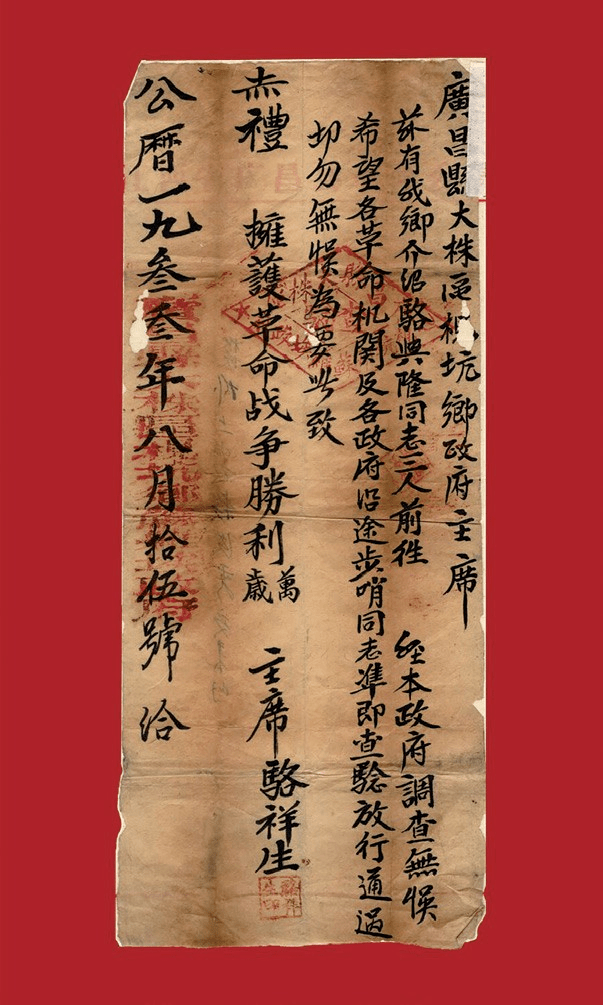 廣昌縣大株區坑鄉政府主席
茲有我鄉介紹駱興隆同志二人前往 經本政府調查無悞
希望各革命机関及各政府沿途步哨同志準即查驗放行通過
切勿無悞為要此致
赤禮 擁護革命战争勝利萬歲 主席駱祥生
駱祥生印
公曆一九叁叁年八月拾伍號給